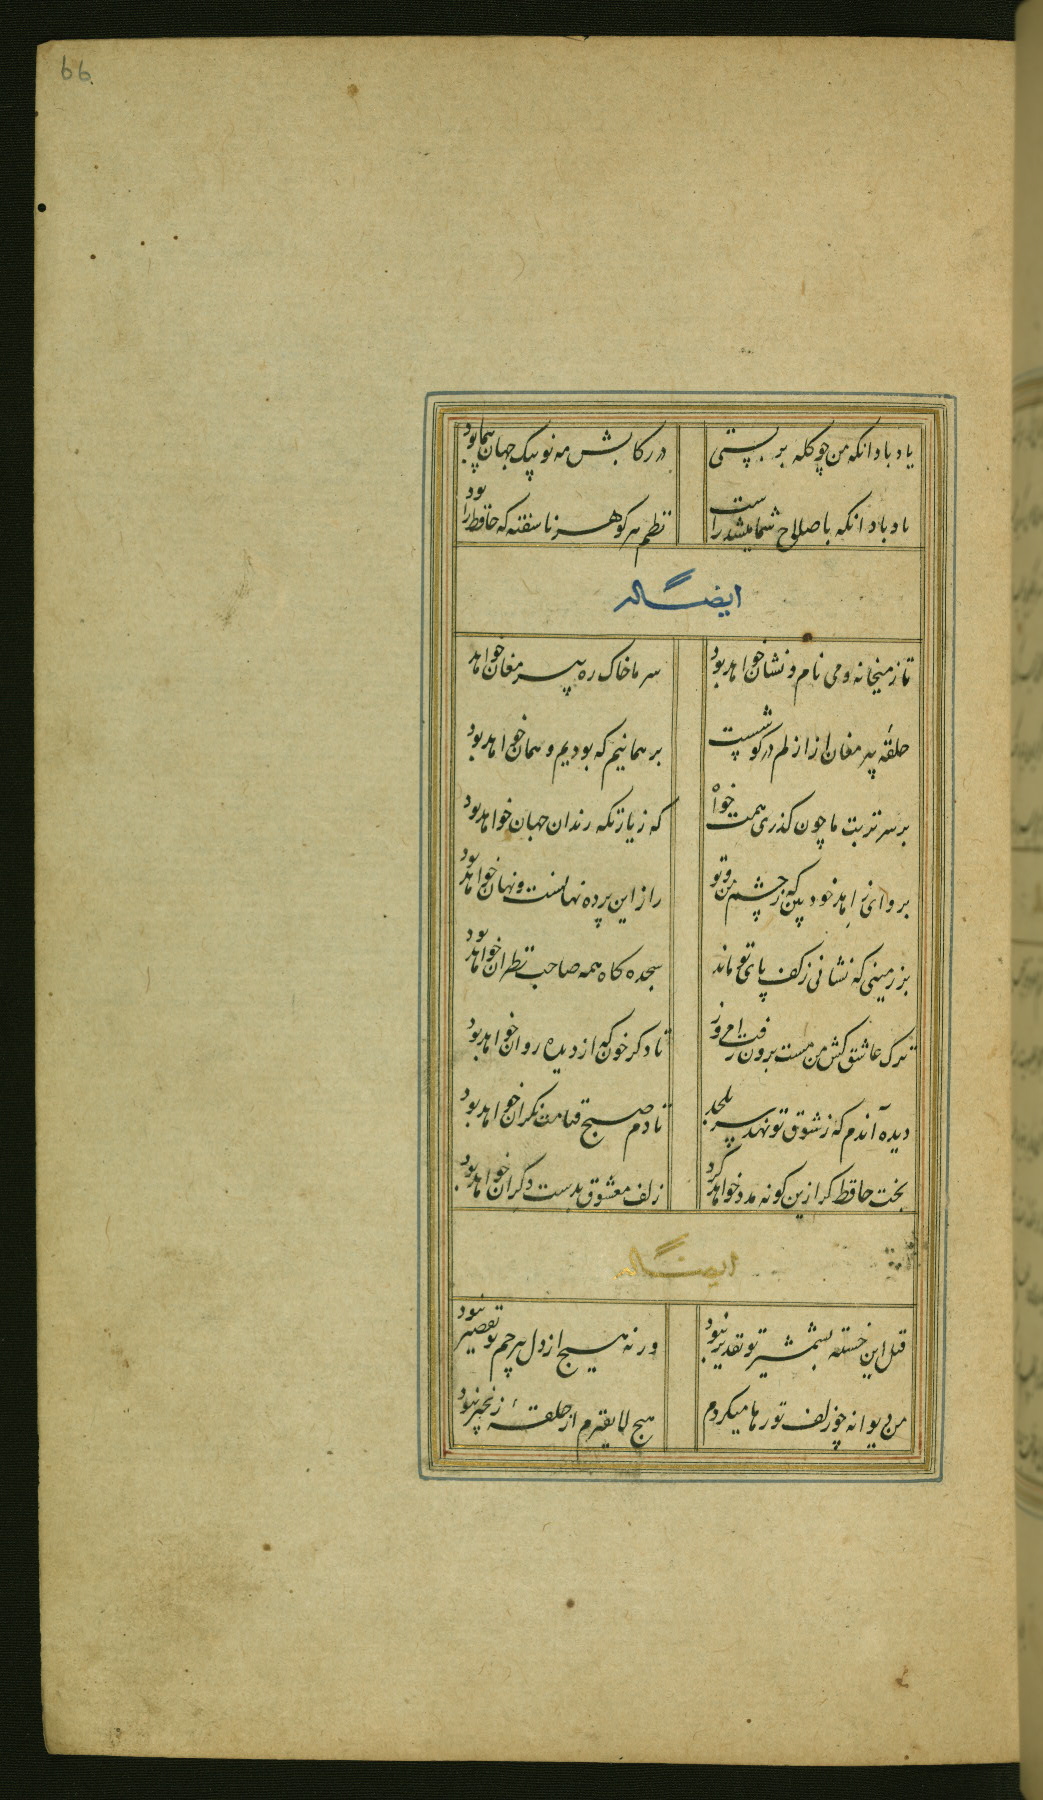 66
یاد باد آنکه من چو کله بر بستی در رکابش مه نو پیک جهان پیما بود
یاد باد آنکه باصلاح شما میشد راست نظم هر کوهر ناسفته که حافظ را بود
ایضاً له
تا ز میخانه و می نام و نشان خواهد بود سر ما خاک ره پیر مغان خواهد
حلقهٔ پیر مغان از ازلم در کوشست بر همانیم که بودیم و همان خواهد بود
بر سر تربت ما چون کذری همت خواه که زیارتکه رندان جهان خواهد بود
برو ای زاهد خود بین که ز چشم من و تو راز این پرده نهانست و نهان خواهد بود
بر زمینی که نشانی ز کف پای تو ماند سجده کاه همه صاحب نظران خواهد بود
ترک عاشق کش من مست برون رفت امروز تا دکر خون که از دیده روان خواهد بود
دیده آندم که ز شوق تو نهد سر بلحد تا دم صبح قیامت نکران خواهد بود
بخت حافظ کر ازین کونه مدد خواهد کرد زلف معشوق بدست دکران خواهد بود
ایضاً له
قتل این خسته بشمشیر تو تقدیر نبود ورنه هیچ از دل بیرحم تو تقصیر نبود
من دیوانه چو زلف تو رها میکردم هیچ لایقترم از حلقهٔ زنجیر نبود